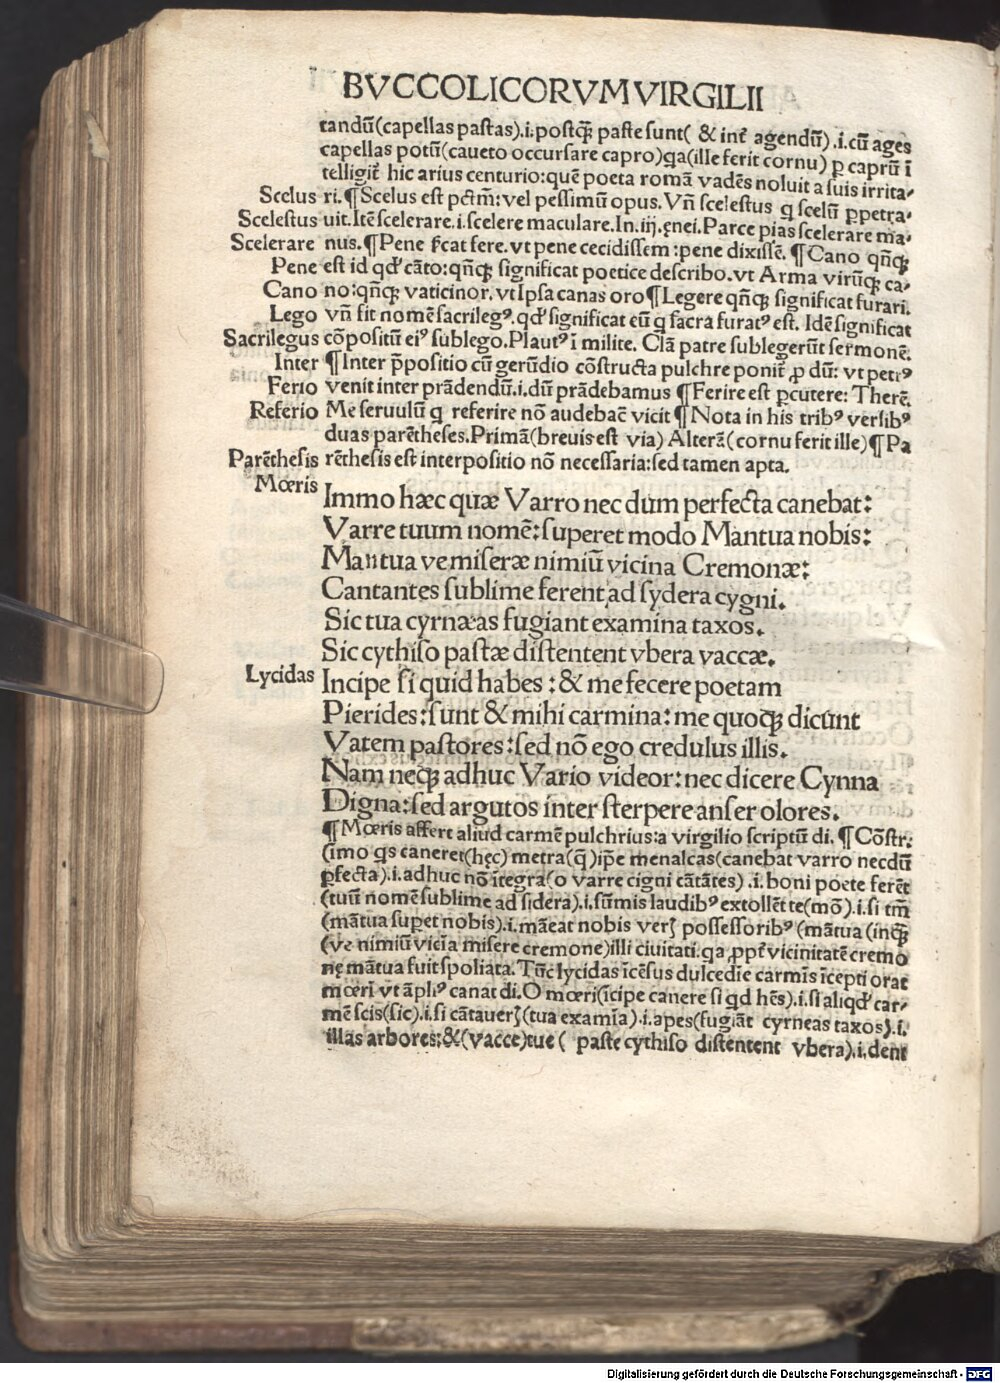 BVCCOLICORVM VIRGILII
tandū(capellas pastas).i.postq̃ꝫ paste sunt( & int̃ agendū).i.cū ages
capellas potū(caueto occursare capro)q̃a(ille ferit cornu) ꝑ caprū ī
telligit̃ hic arius centurio:quē poeta romā vadēs noluit a suis irrita-
Scelus ri.¶Scelus est pctm̃:vel pessimū opus.Vñ scelestus q̃ scelū ꝑpetra-
Scelestus uit.Itē scelerare.i.scelere maculare.In.iij.ęnei.Parce pias scelerare ma-
Scelerare nus.¶Pene f̃cat fere.vt pene cecidissem:pene dixissē.¶Cano qñqꝫ
Pene est id qd̓ cāto:qñqꝫ significat poetice describo.vt Arma virūqꝫ ca-
Cano no:qñqꝫ vaticinor.vt Ipsa canas oro¶Legere qñqꝫ significat furari.
Lego vñ fit nomē sacrilegꝰ.qd̓ significat eū q̃ sacra furatꝰ est. Idē significat
Sacrilegus cōpositū eiꝰ sublego.Plautꝰ ī milite. Clā patre sublegerūt sermonē.
Inter ¶Inter p̄positio cū gerūdio cōstructa pulchre ponit̃ ꝓ dū: vt petrꝰ
Ferio venit inter prādendū.i.dū prādebamus ¶Ferire est ꝑcutere: Therē.
Referio Me seruulū q̃ referire nō audebā: vicit ¶Nota in his tribꝰ versibꝰ
duas parētheses.Primā(breuis est via) Alterā(cornu ferit ille)¶Pa
Parēthesis rēthesis est interpositio nō necessaria:sed tamen apta.
Mœris Immo hæc quæ Varro nec dum perfecta canebat:
Varre tuum nomē:superet modo Mantua nobis:
Mantua ve miseræ nimiū vicina Cremonæ:
Cantantes sublime ferent ad sydera cygni.
Sic tua cyrnæas fugiant examina taxos.
Sic cythiso pastæ distentent vbera vaccæ.
Lycidas Incipe si quid habes:& me fecere poetam
Pierides:sunt & mihi carmina:me quoqꝫ dicūnt
Vatem pastores:sed nō ego credulus illis.
Nam neqꝫ adhuc Vario videor:nec dicere Cynna
Digna:sed argutos inter sterpere anser olores.
¶Mœris affert aliud carmē pulchrius:a virgilio scriptū di.¶Cōstr:
(imo q̃s caneret(hęc) metra(q̄)ip̄e menalcas(canebat varro necdū
ꝑfecta).i.adhuc nō ītegra(o varre cigni cātātes).i.boni poete ferēt
(tuū nomē sublime ad sidera).i.sūmis laudibꝰ extollēt te(mō).i.si tm̄
(mātua suꝑet nobis).i.māeat nobis veris possessoribꝰ(mātua(inqꝫ
(ve nimiū vicīa misere cremone)illi ciuitati.q̃a ꝓpt̃ vicinitatē cremo
nę mātua fuit spoliata.Tūc lycidas īcēsus dulcedīe carmīs īcepti orat
mœrī vt āpliꝰ canat di.O mœri(īcipe canere si qd̓ hēs).i.si aliqd̓ car-
mē scis(sic).i.si cātaueris(tua examīa).i.apes(fugiāt cyrneas taxos).i.
illas arbores:&(vacce)tue( paste cythiso distentent vbera).i.dent
Digitalisierung gefördert durch die Deutsche Forschungsgemeinschaft - DFG